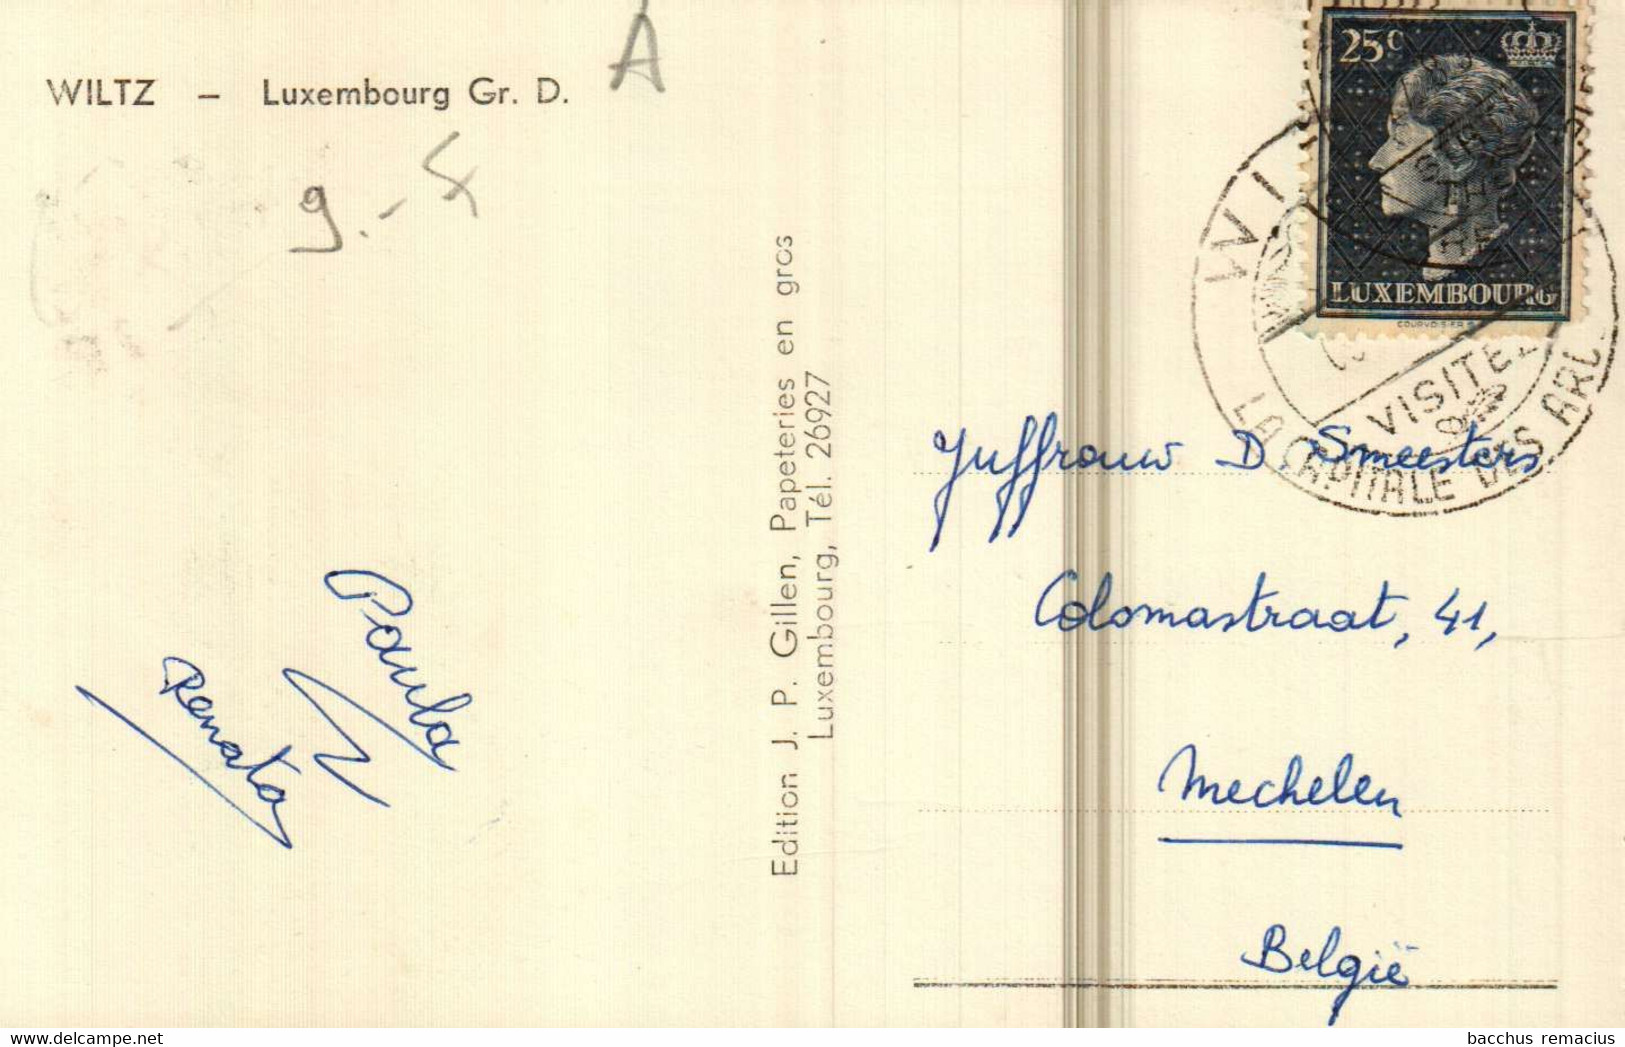 A
WILTZ – Luxembourg Gr. D.
9.-
Edition J. P. Gillen, Papeteries en gros
Luxembourg, Tél. 26927
25c
LUXEMBOURG
COURVOISIER
VISITEZ
LA CAPITALE DES ARD
Juffrouw D. Smeesters
Colomastraat, 41,
Mechelen
België
Paula
Renata
bacchus remacius